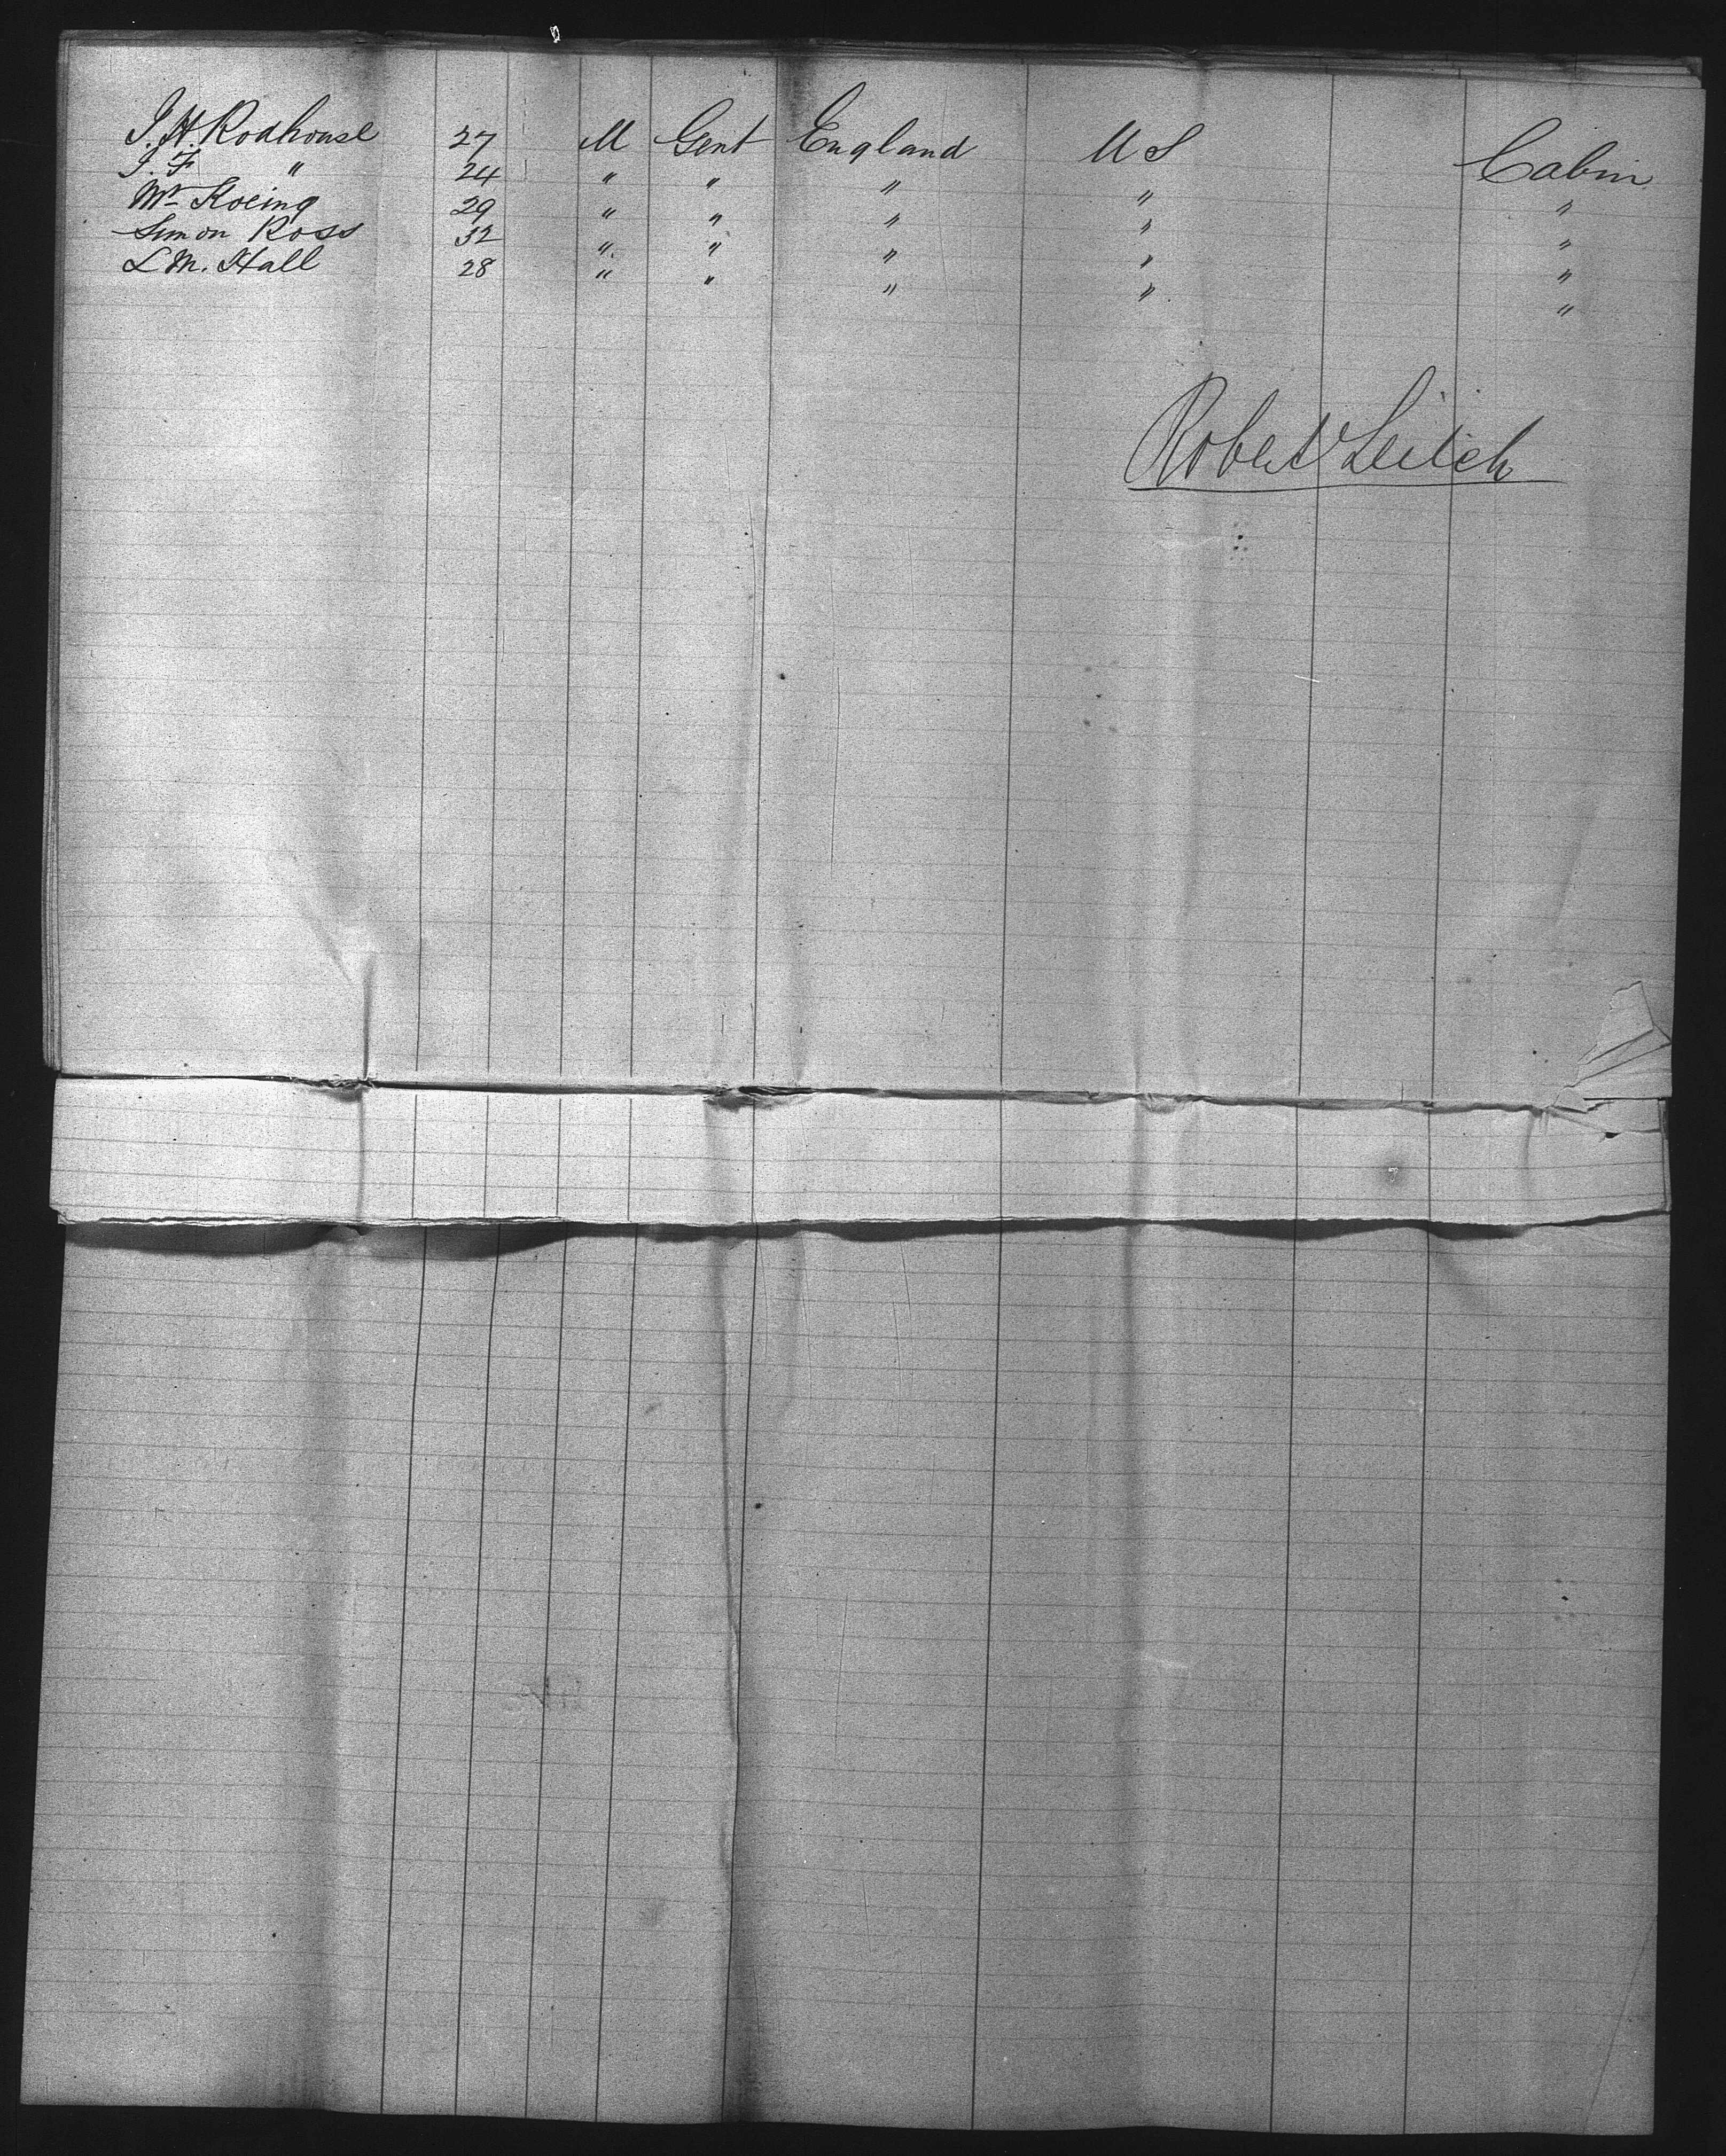 J. H. Rodhouse 27 M Gent England U S Cabin
J. F " 24 " " " " "
Mr Koeing 29 " " " " "
Simon Ross 32 " " " " "
L M. Hall 28 " " " " "
Robert Leitch